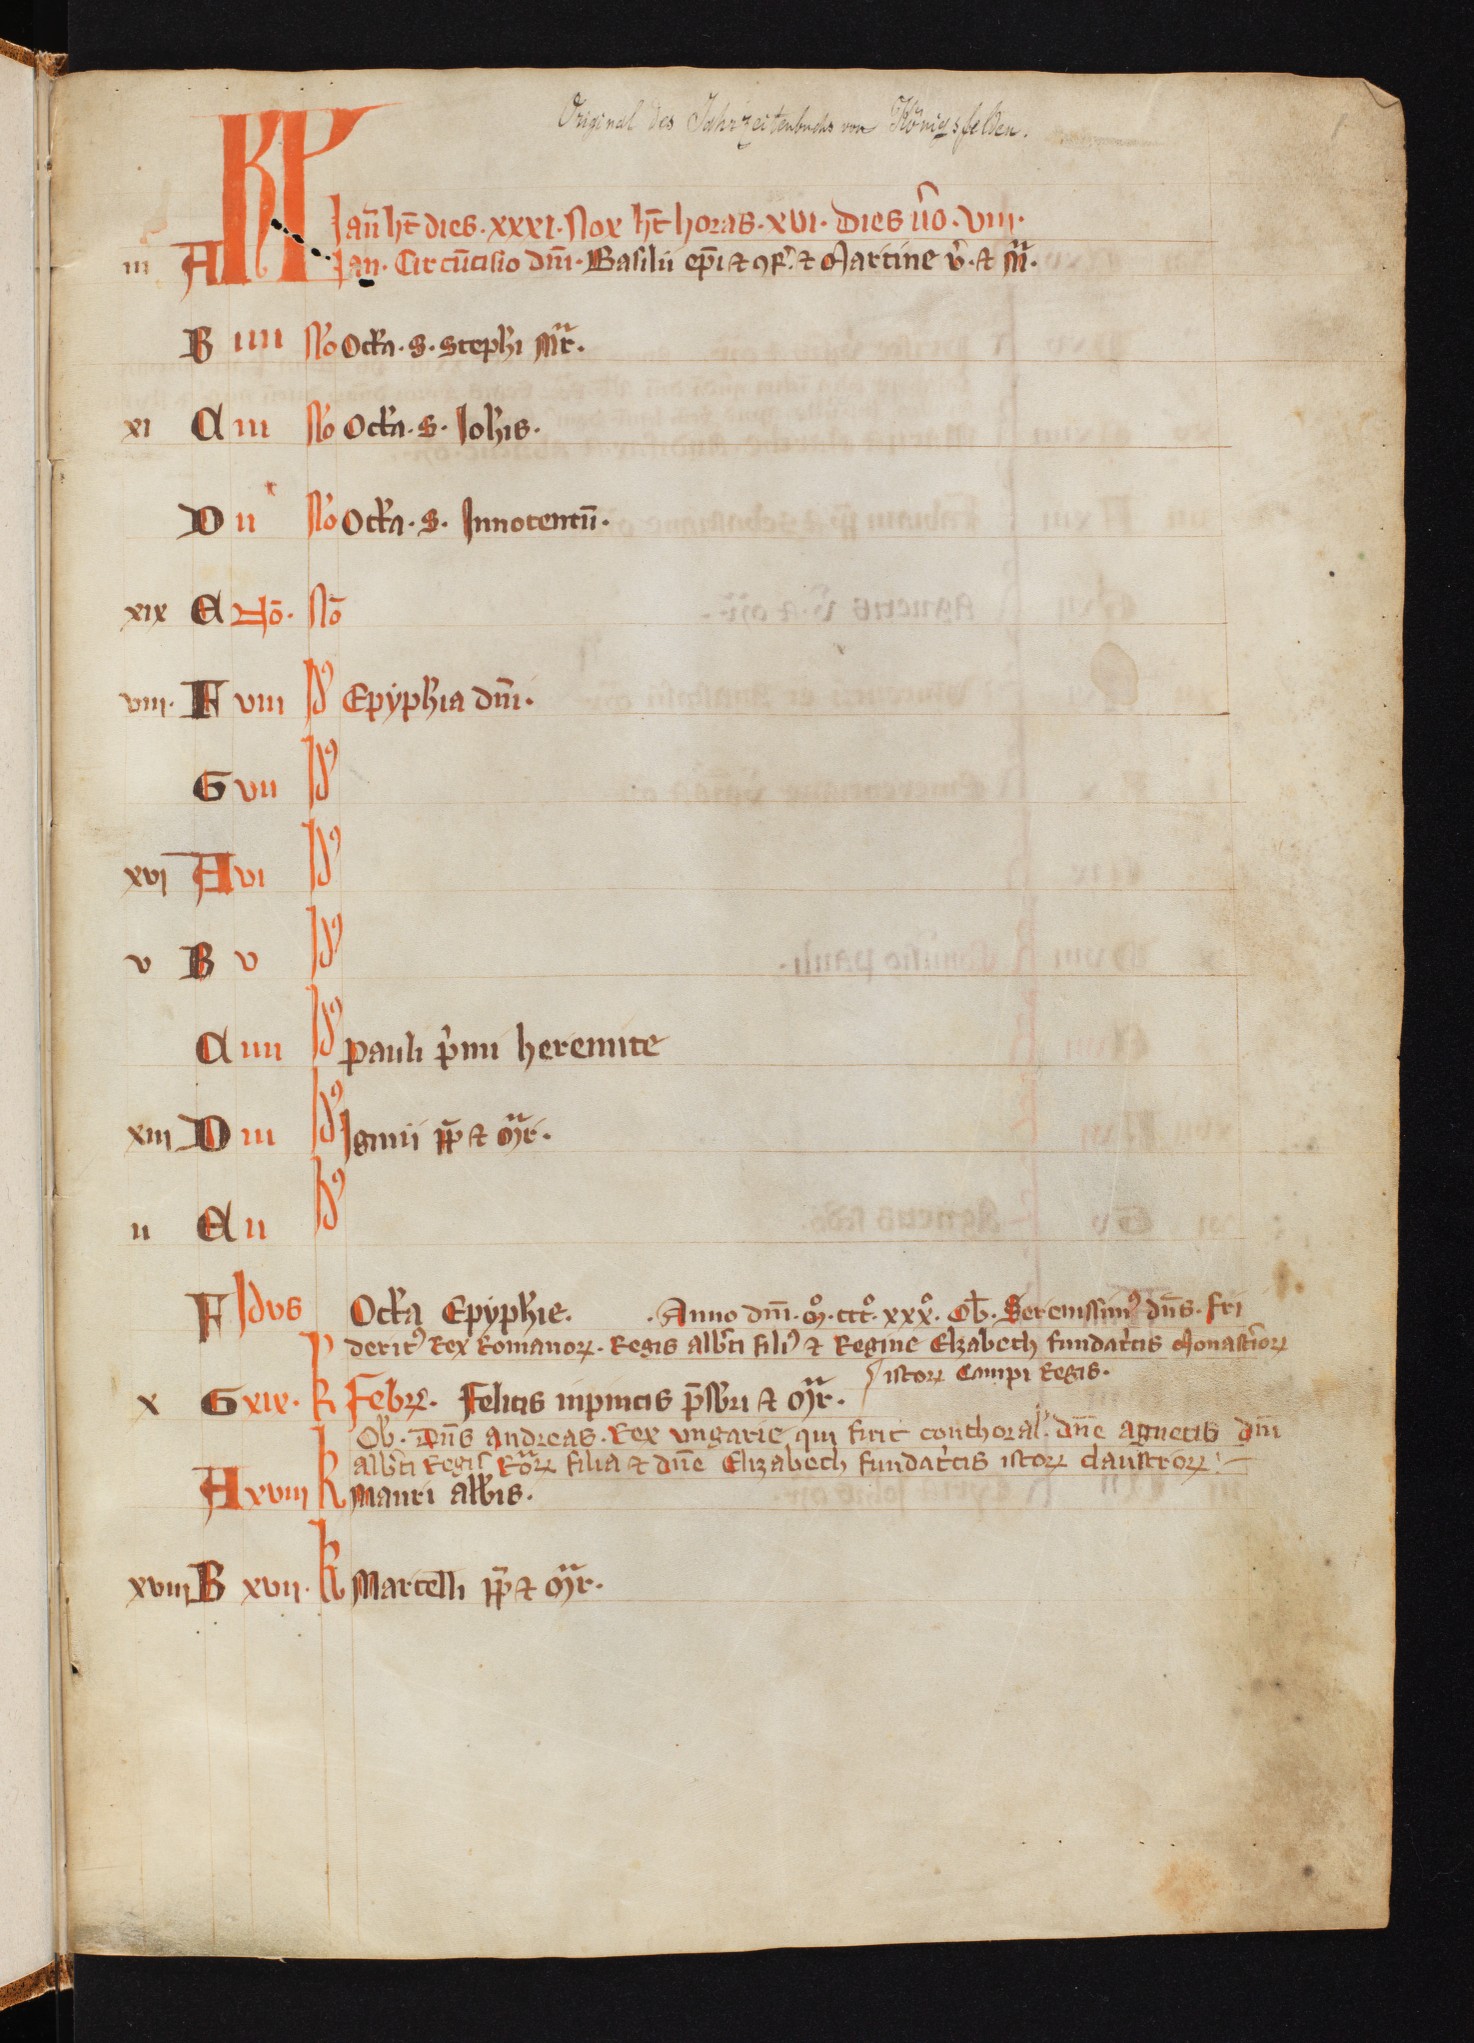 Original des Jahrzeitenbuchs von Königsfelden.
KL Jan̄ ht̄ dies · xxxi · Nox ht̄ horas · xvi · Dies ūo · viii ·
iii A Jan · Circūcisio dn̄i · Basilii ep̄i et ɔf̄ · et Martine v̄ · et m̄r ·
B iiii No Octa · s · stephi Mr̄ ·
xi C iii No Octa · s · Johis ·
D ii No Octa · s · Innocentū ·
xix E No · No
viii · F viii Id Epyphia dn̄i ·
G vii Id
xvi A vi Id
v B v Id
C iiii Id Pauli p̄mi heremite
xiii D iii Id Iginii pp̄ et Mr̄ ·
ii E ii Id
F Idus Octa Epyphie · Anno dn̄i · Mº · cccº · xxxº · Ob · Serenissimꝰ dn̄s · fri
dericꝰ Rex Romanoꝝ · Regis alb̄ti filiꝰ et Regine Elzabeth fundat̄cis Monast̄ioꝝ
istoꝝ Campi Regis ·
x G xix · K Febr̄ · Felicis inpincis p̄sbr̄i et Mr̄ ·
Ob · Dn̄s Andreas · Rex ungarie qui fuit conthoral̓ · dn̄e agnetis dn̄i
alb̄ti Regis Ro᷑ꝝ filia et dn̄e Elizabech fundat̄cis istoꝝ claustroꝝ ·
A xviii K Mauri abb̄is ·
xviii B xvii · K Marcelli pp̄ et Mr̄ ·